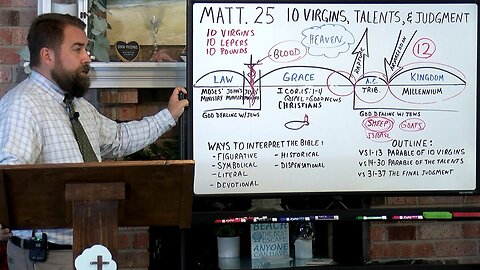 MATT. 25 10 VIRGINS, TALENTS, & JUDGMENT
10 VIRGINS
10 LEPERS
10 POUNDS
BLOOD
HEAVEN
RAPTURE
12
LAW
GRACE
A.C.
KINGDOM
MOSES' JOHN'S JESUS
MINISTRY MINISTRY
I COR. 15:1-4
GOSPEL = GOOD NEWS
CHRISTIANS
TRIB.
MILLENNIUM
GOD DEALING W/ JEWS
GOD DEALING W/ JEWS
SHEEP GOATS
ISRAEL
WAYS TO INTERPRET THE BIBLE:
- FIGURATIVE
- SYMBOLICAL
- LITERAL
- DEVOTIONAL
- HISTORICAL
- DISPENSATIONAL
OUTLINE:
VS 1-13 PARABLE OF 10 VIRGINS
VS 14-30 PARABLE OF THE TALENTS
VS 31-37 THE FINAL JUDGMENT
BEACH
THE BEST
ESCAPE
ANYONE
CAN HAVE